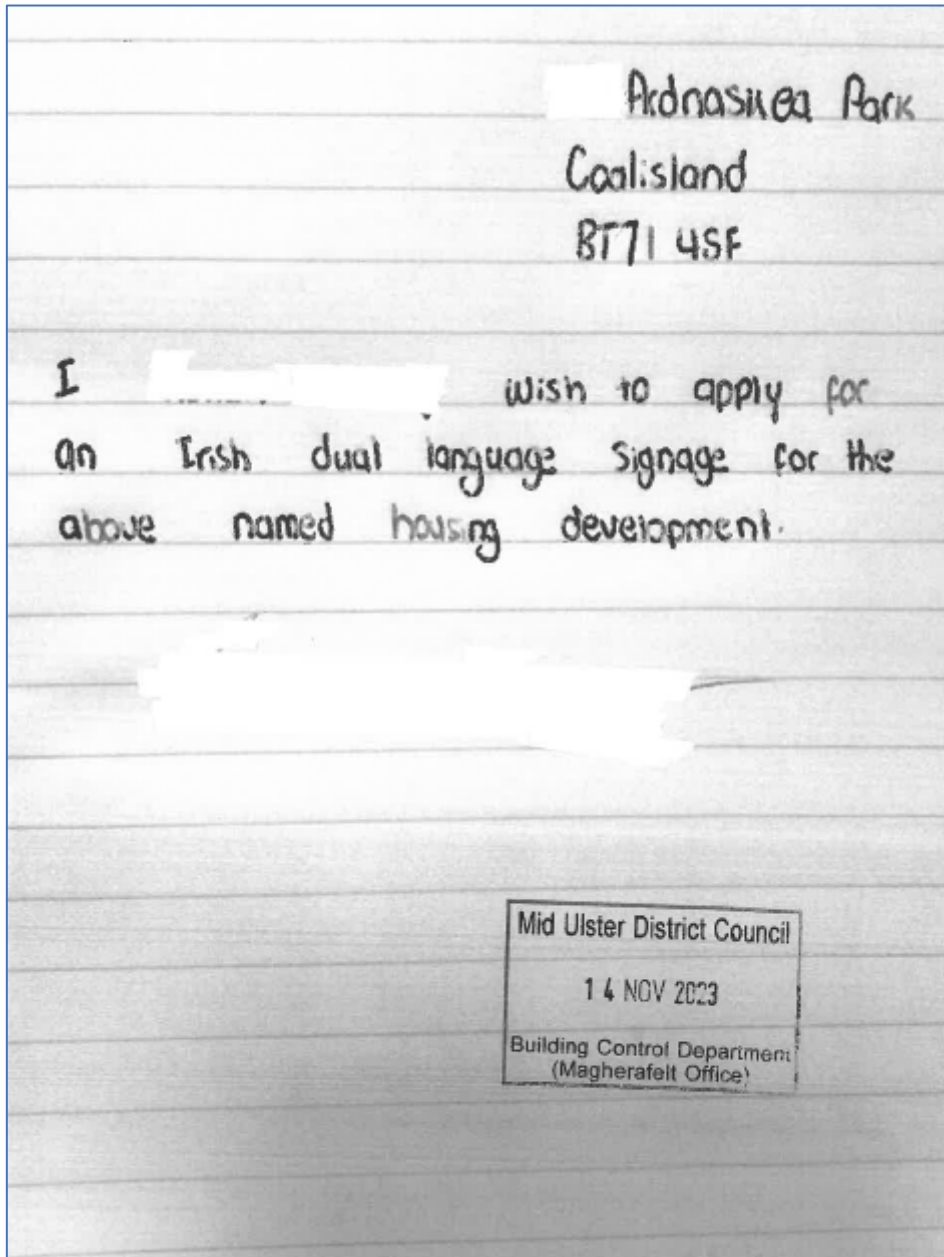 Ardnaskea Park
Coalisland
BT71 4SF
I wish to apply for
an Irish dual language signage for the
above named housing development.
Mid Ulster District Council
14 NOV 2023
Building Control Department
(Magherafelt Office)